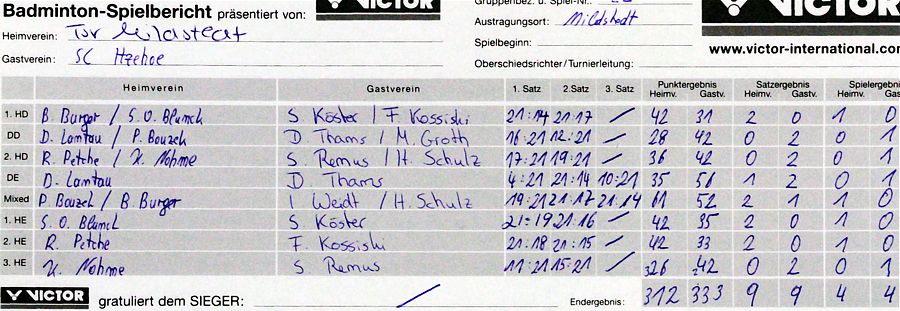 Badminton-Spielbericht präsentiert von: VICTOR VICTOR
Heimverein: TSV Mildstedt
Gastverein: SC Itzehoe
Austragungsort: Mildstedt
Spielbeginn:
Oberschiedsrichter/Turnierleitung:
www.victor-international.com
Heimverein Gastverein 1. Satz 2. Satz 3. Satz Punktergebnis Satzergebnis Spielergeb
Heimv. Gastv. Heimv. Gastv. Heimv. Gas
1. HD B. Burger / S. O. Blunck S Köster / F Kossiski 21:14 21:17 / 42 31 2 0 1 0
DD D. Lamtau / P. Bouzek D Thams / M. Groth 16:21 12:21 / 28 42 0 2 0 1
2. HD R. Petche / K. Nohme S Remus / H. Schulz 17:21 19:21 / 36 42 0 2 0 1
DE D. Lamtau D Thams 4:21 21:14 10:21 35 56 1 2 0 1
Mixed P. Bouzek / B. Burger I Weidt / H. Schulz 19:21 21:17 21:14 61 52 2 1 1 0
1. HE S. O. Blunck S Köster 21:19 21:16 / 42 35 2 0 1 0
2. HE R. Petche F Kossiski 21:18 21:15 / 42 33 2 0 1 0
3. HE K. Nohme S Remus 11:21 15:21 / 26 42 0 2 0 1
VICTOR gratuliert dem SIEGER: / Endergebnis: 312 333 9 9 4 4